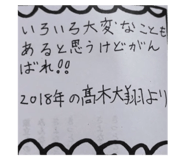 いろいろ大変なことも
あると思うけどがん
ばれ!!
2018年の高木大翔より